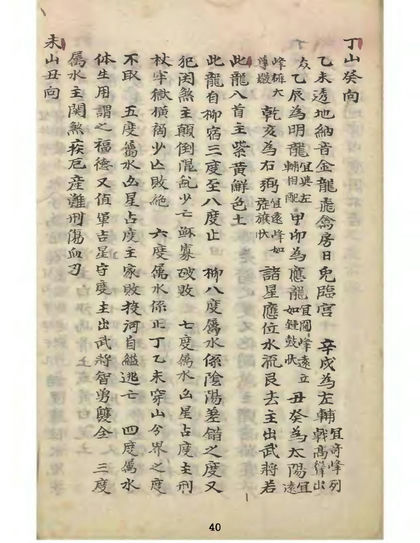 丁山癸向
乙未透地納音金龍處禽房日兔臨宮 辛戌為左輔宜奇峰列戟高聳出
衆乙辰為明龍宜與左輔相配甲卯為應龍宜圓峰遠立如鐘鼓狀丑癸為太陽宜遠
峰礴大尊嚴乾亥為右弼宜遠峰如旌旗狀諸星應位水流艮去主出武將若
此龍八首主紫黃鮮色土
此龍自柳宿三度至八度止 柳八度屬水係陰陽差錯之度又
犯因煞主顛倒混乱少亡蘇寡破敗 七度屬水凶星占度主刑
杖牢獄橫禍少亾敗絶 六度屬水係正丁乙未穿山分界之度
不取 五度屬水凶星占度主家敗投河自縊逃亡 四度屬水
体生用謂之福德又值軍吉星守度主出武將智勇雙全 三度
屬水主関煞疾厄産難刑傷血刃
未山丑向
40